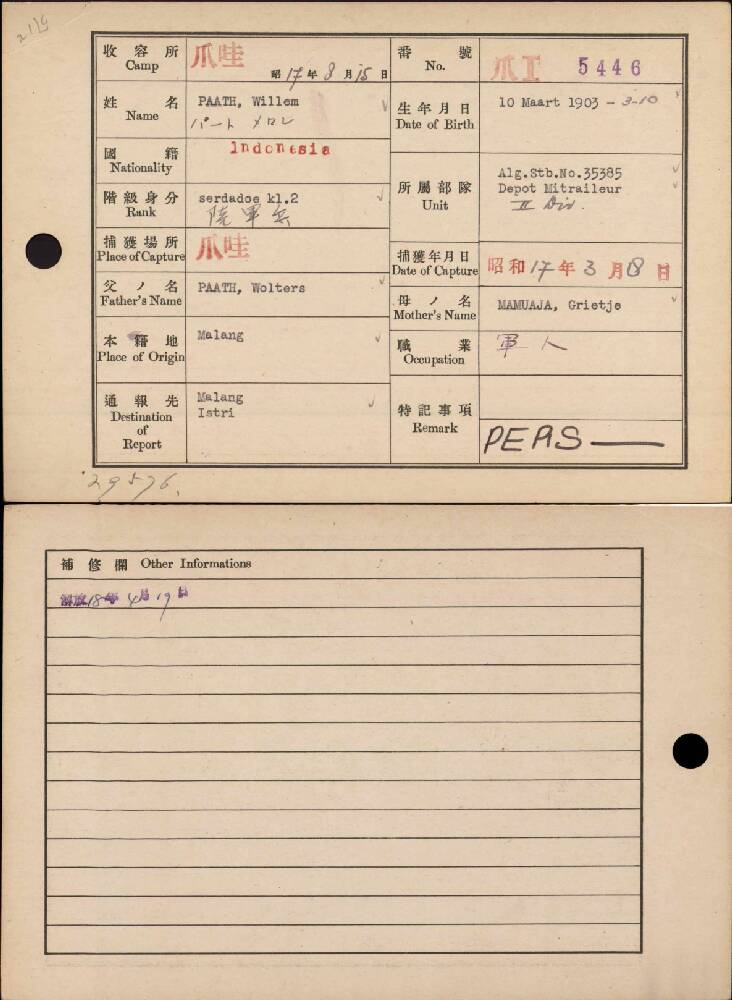 2119
收容所
Camp
爪哇
昭17年8月15日
番號
No.
爪I 5446
姓名
Name
PAATH, Willem
パート メロレ
生年月日
Date of Birth
10 Maart 1903 - 3-10
國籍
Nationality
Indonesia
階級身分
Rank
serdadoe kl.2
陸軍兵
所屬部隊
Unit
Alg.Stb.No.35385
Depot Mitraileur
II Div.
捕獲場所
Place of Capture
爪哇
捕獲年月日
Date of Capture
昭和17年3月8日
父ノ名
Father's Name
PAATH, Wolters
母ノ名
Mother's Name
MAMUAJA, Grietje
本籍地
Place of Origin
Malang
職業
Occupation
軍人
通報先
Destination
of
Report
Malang
Istri
特記事項
Remark
PEAS
29576.
補修欄 Other Informations
解放18年4月19日